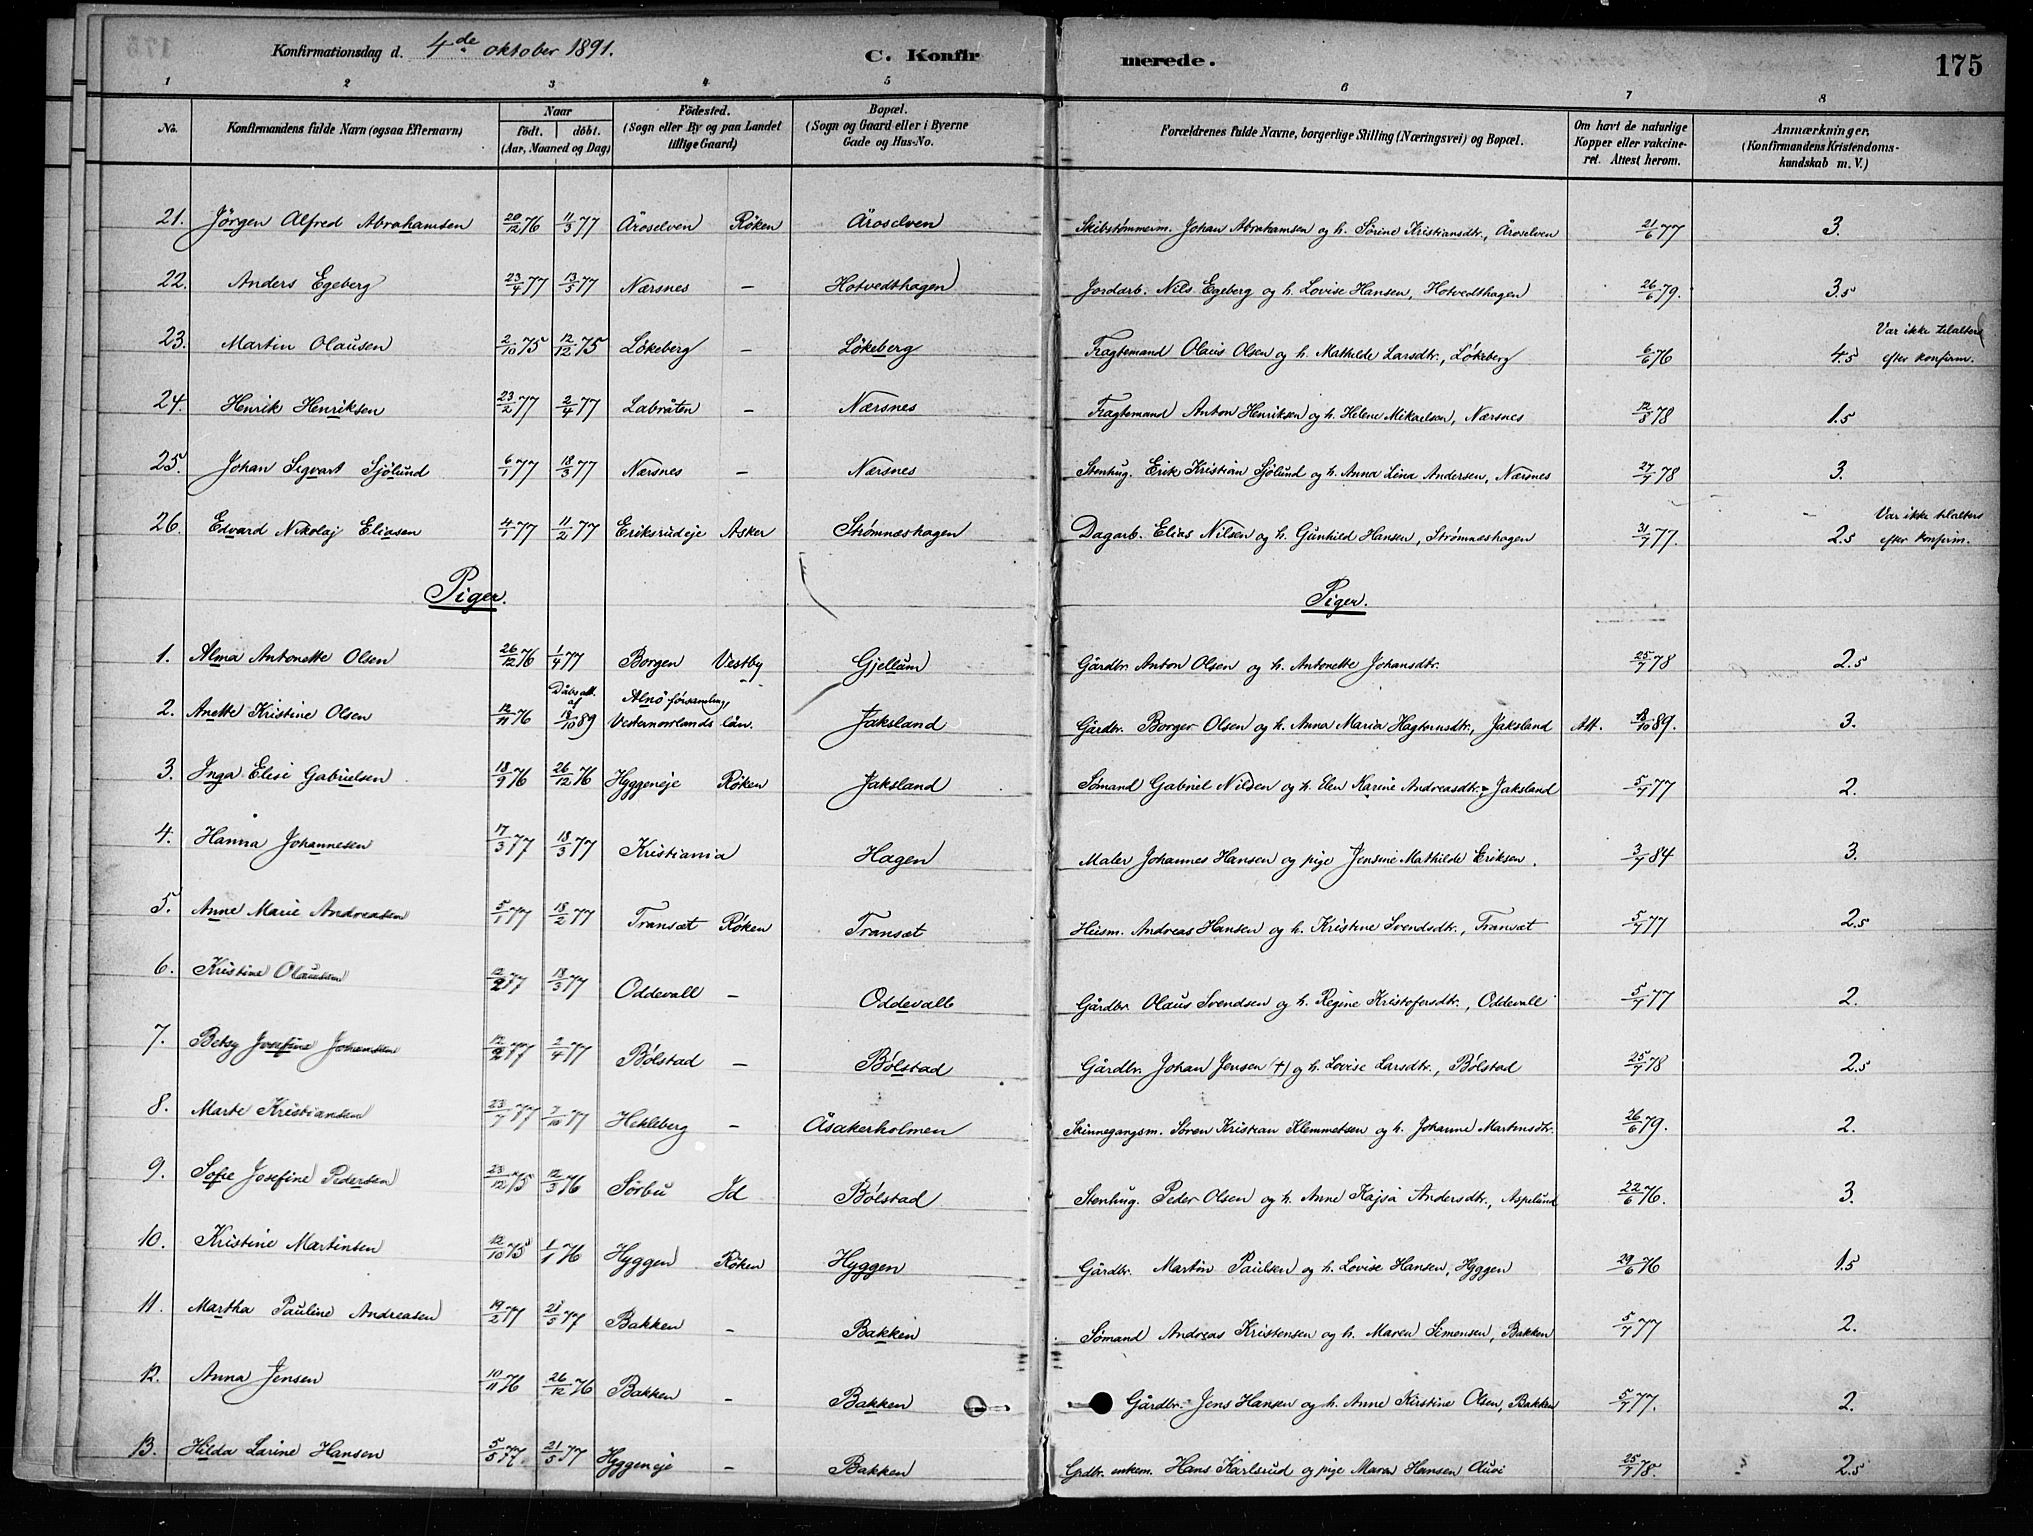 Konfirmationsdag d. 4de oktober 1891.
C. Konfirmerede.
175
1 2 3 4 5 6 7 8
No. Konfirmandens fulde Navn (ogsaa Efternavn) Naar födt. döbt. (Aar, Maaned og Dag) Födested. (Sogn eller By og paa Landet tillige Gaard) Bopæl. (Sogn og Gaard eller i Byerne Gade og Hus-No. Forældrenes fulde Navne, borgerlige Stilling (Næringsvei) og Bopæl. Om havt de naturlige Kopper eller vakcineret. Attest herom. Anmærkninger, (Konfirmandens Kristendomskundskab m. V.)
21. Jörgen Alfred Abrahamsen 20/12 76 11/3 77 Åroselven Röken Åroselven Skibstømmerm. Johan Abrahamsen og h. Sörine Kristiansdtr., Åroselven 21/6 77 3.
22. Anders Egeberg 23/4 77 13/5 77 Nærsnes - Hotvedthagen Jordarb. Nils Egeberg og h. Lovise Hansen, Hotvedthagen 26/6 79. 3.5
23. Martin Olausen 2/10 75 12/12 75 Lökeberg - Lökeberg Fragtemand Olaus Olsen og h. Mathilde Larsdtr., Lökeberg 6/6 76 4.5 Var ikke tilalters efter konfirm.
24. Henrik Henriksen 23/2 77 2/4 77 Labråten - Nærsnes Fragtemand Anton Henriksen og h. Helene Mikaelsen, Nærsnes 12/8 78 1.5
25. Johan Sigvart Sjölund 6/1 77 18/3 77 Nærsnes - Nærsnes Stenhug. Erik Kristian Sjölund og h. Anna Lina Andersen, Nærsnes 27/7 78 3.
26. Edvard Nikolaj Eliasen 4/1 77 11/2 77 Eriksrudeje Asker Strømneshagen Dagarb. Elias Nilsen og h. Gunhild Hansen, Strømneshagen 31/7 77. 2.5 Var ikke tilalters efter konfirm.
Piger. Piger.
1. Alma Antonette Olsen 26/12 76 1/4 77 Borgen Vestby Gjellum Gårdbr. Anton Olsen og h. Antonette Johansdtr. 25/7 78 2.5
2. Anette Kristine Olsen 12/11 76 Dåbsatt. af 18/10 89 Alnö församling, Vesternorrlands län. Jaksland Gårdbr. Borger Olsen og h. Anna Maria Hagtornsdtr., Jaksland Att. 18/10 89. 3.
3. Inga Elise Gabrielsen 18/9 76 26/12 76 Hyggeneje Röken Jaksland Sömand Gabriel Nilsen og h. Elen Karine Andreasdtr., Jaksland 5/7 77 2.
4. Hanna Johannesen 17/3 77 18/3 77 Kristiania Hagen Maler Johannes Hansen og pige Jensine Mathilde Eriksen. 3/7 84 3.
5. Anne Marie Andreasen 5/1 77 18/2 77 Transæt Röken Transæt Husm. Andreas Hansen og h. Kristine Svendsdtr., Transæt 5/7 77 2.5
6. Kristine Olausen 12/2 77 18/3 77 Oddevall - Oddevall Gårdbr. Olaus Svendsen og h. Regine Kristofersdtr., Oddevall 5/7 77 2.
7. Betsy Josefine Johansen 12/2 77 2/4 77 Bölstad - Bölstad Gårdbr. Johan Jensen (+) og h. Lovise Larsdtr., Bölstad 25/7 78 2.5
8. Marte Kristiansen 23/7 77 7/10 77 Hekleberg - Åsakerholmen Skinnegangsm. Sören Kristian Klemmetsen og h. Johanne Martinsdtr. 26/6 79. 2.
9. Sofie Josefine Pedersen 23/12 75 12/3 76 Sörbu Id Bölstad Stenhug. Peder Olsen og h. Anne Kajsa Andersdtr., Aspelund 22/6 76. 3.
10. Kristine Martinsen 12/10 75 1/1 76 Hyggen Röken Hyggen Gårdbr. Martin Paulsen og h. Lovise Hansen, Hyggen 29/6 76 1.5
11. Martha Pauline Andreasen 19/2 77 21/5 77 Bakken - Bakken Sömand Andreas Kristensen og h. Maren Simensen, Bakken 5/7 77 2.
12. Anna Jensen 10/11 76 26/12 76 Bakken - Bakken Gårdbr. Jens Hansen og h. Anne Kirstine Olsen, Bakken 5/7 77. 2.
13. Hilda Larine Hansen 5/5 77 21/5 77 Hyggeneje - Bakken Grdbr. enkem. Hans Karlsrud og pige Maren Hansen Auvi 25/7 78. 2.5